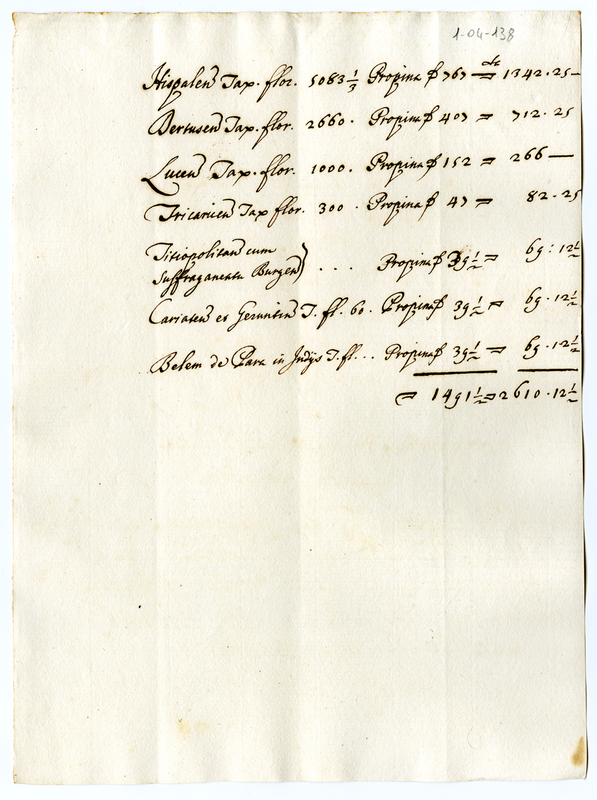 1-04-138
Hispalen Tax. flor. 5083 1/3 Propina ꝑ 767 = 1342.25—
Dertusen Tax. flor. 2660. Propina ꝑ 407 = 712.25
Lucen Tax. flor. 1000. Propina ꝑ 152 = 266 —
Tricaricen Tax flor. 300. Propina ꝑ 47 = 82.25
Titiopolitan cum
Suffraganeatu Burgen) .... Propina ꝑ 39 1/2 = 69:12 1/2
Cariaten et Geruntin T. fl. 60. Propina ꝑ 39 1/2 = 69.12 1/2
Belem de Para in Indijs T. fl... Propina ꝑ 39 1/2 = 69.12 1/2
= 1491 1/2 = 2610.12 1/2